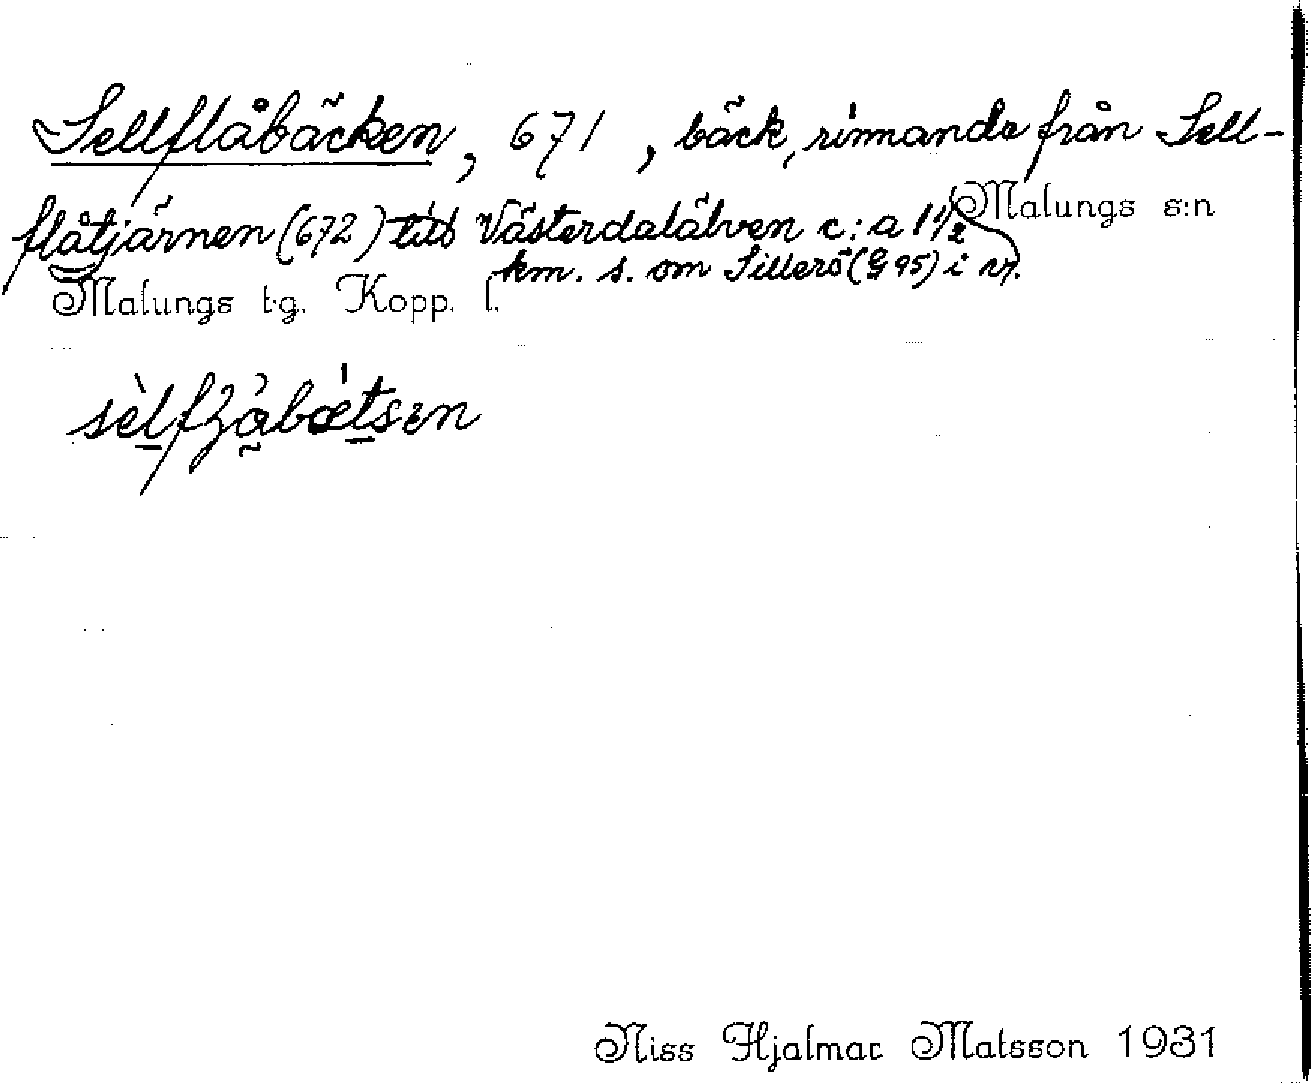 Sellflåbäcken, 671, bäck, rinnande från Sell-
flåtjärnen (672) till Västerdalälven c:a 1 1/2
Malungs s:n
km. s. om Sillerö (G 95) i
Malungs t.g. Kopp. l.
Niss Hjalmar Matsson 1931